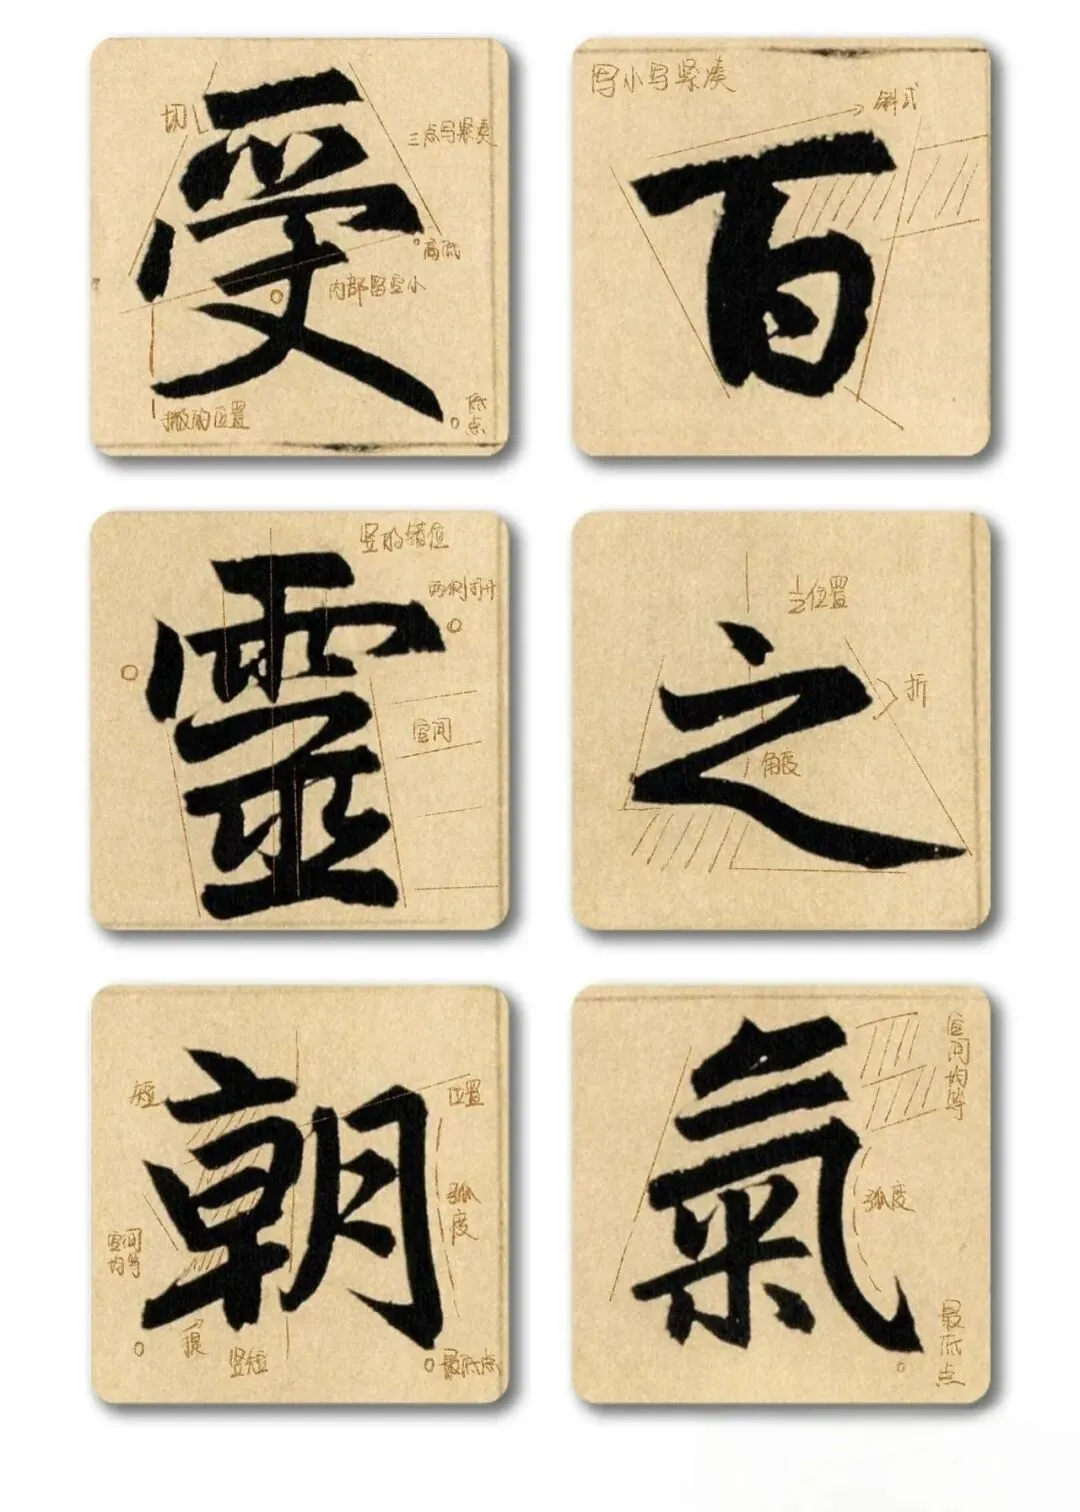 受
切
三点写紧凑
高低
内部留空小
撇的位置
低点
百
写小写紧凑
斜式
靈
竖的错位
两侧打开
空间
之
1/2位置
折
角度
朝
短
位置
弧度
空间均等
提
竖短
最低点
氣
空间均等
弧度
最低点